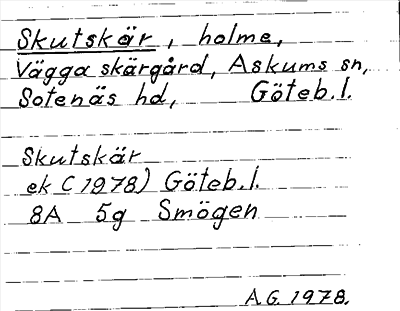 Skutskär, holme,
Vägga skärgård, Askums sn,
Sotenäs hd, Göteb.l.
Skutskär
ek (1978) Göteb.l.
8A 5g Smögen
A.G. 1978.